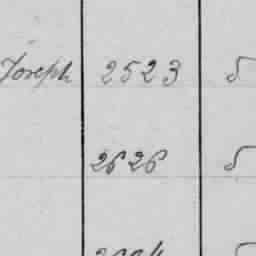 Joseph 2523 5
2626 5